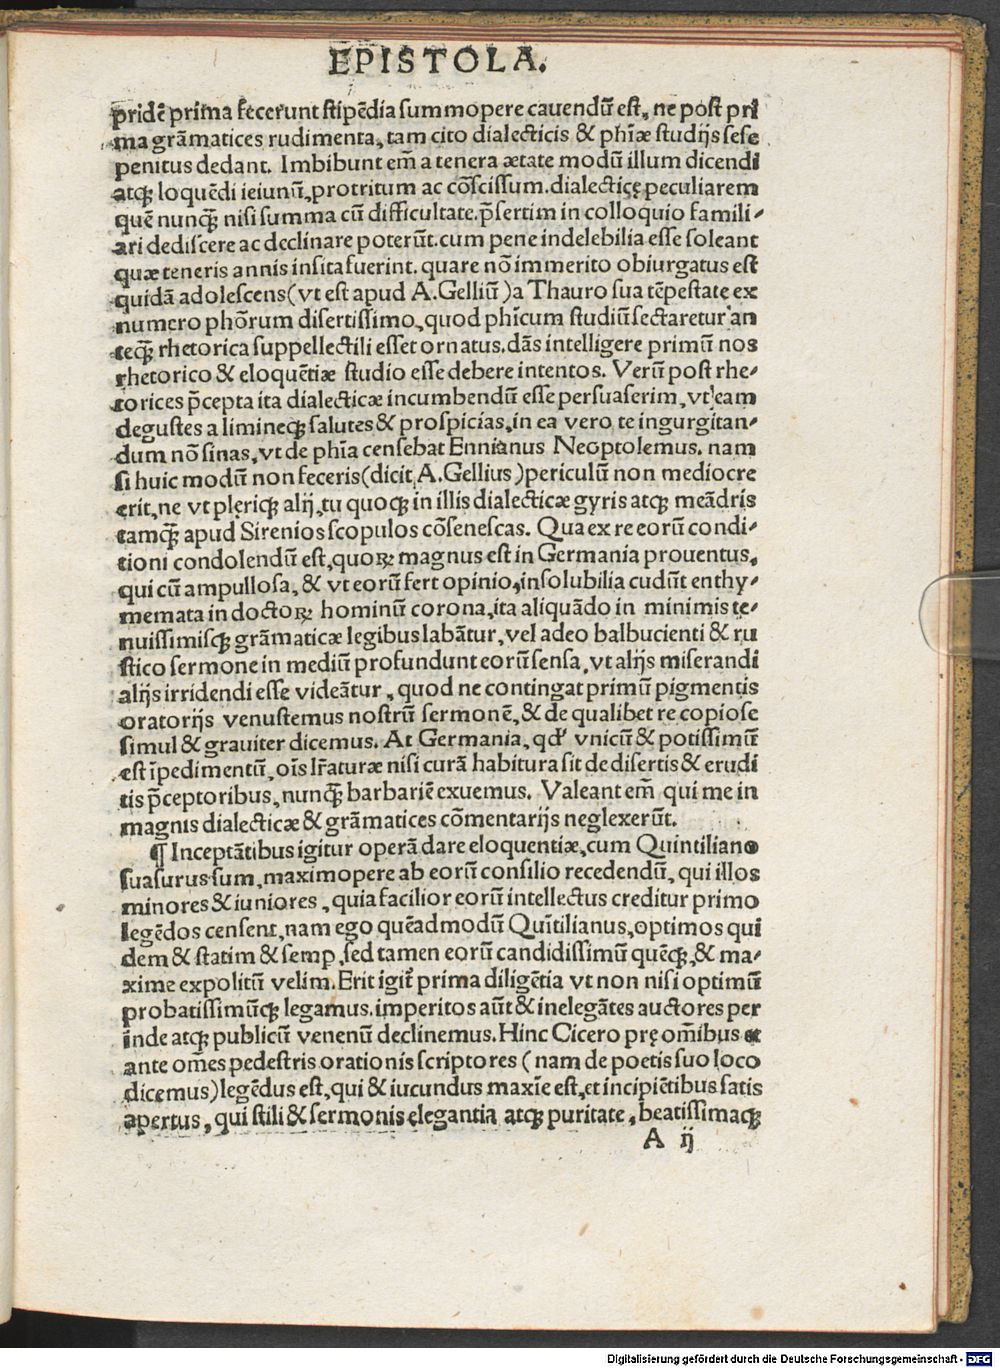 EPISTOLA.
pridē prima fecerunt stipēdia summopere cauendū est, ne post pri
ma grāmatices rudimenta, tam cito dialecticis & phīæ studijs sese
penitus dedant. Imbibunt em̄ a tenera ætate modū illum dicendi
atqꝫ loquēdi ieiunū, protritum ac cōscissum. dialecticę peculiarem
quē nunqꝫ̄ nisi summa cū difficultate. p̄sertim in colloquio famili⸗
ari dediscere ac declinare poterūt. cum pene indelebilia esse soleant
quæ teneris annis insita fuerint. quare nō immerito obiurgatus est
quidā adolescens (vt est apud A. Gelliū) a Thauro sua tēpestate ex
numero phōrum disertissimo, quod phīcum studiū sectaretur an
teqꝫ̄ rhetorica suppellectili esset ornatus. dās intelligere primū nos
rhetorico & eloquētiæ studio esse debere intentos. Verū post rhe⸗
torices p̄cepta ita dialecticæ incumbendū esse persuaserim, vt eam
degustes a limineqꝫ salutes & prospicias, in ea vero te ingurgitan⸗
dum nō sinas, vt de phīa censebat Ennianus Neoptolemus. nam
si huic modū non feceris (dicit A. Gellius) periculū non mediocre
erit, ne vt plęriqꝫ alij, tu quoqꝫ in illis dialecticæ gyris atqꝫ meādris
tamqꝫ̄ apud Sirenios scopulos cōsenescas. Qua ex re eorū condi⸗
tioni condolendū est, quoꝝ magnus est in Germania prouentus,
qui cū ampullosa, & vt eorū fert opinio, insolubilia cudūt enthy⸗
memata in doctoꝝ hominū corona, ita aliquādo in minimis te⸗
nuissimisqꝫ grāmaticæ legibus labātur, vel adeo balbucienti & ru
stico sermone in mediū profundunt eorū sensa, vt alijs miserandi
alijs irridendi esse videātur, quod ne contingat primū pigmentis
oratorijs venustemus nostrū sermonē, & de qualibet re copiose
simul & grauiter dicemus. At Germania, qd' vnicū & potissimū
est īpedimentū, oīs lr̄aturæ nisi curā habitura sit de disertis & erudi
tis p̄ceptoribus, nunqꝫ̄ barbariē exuemus. Valeant em̄ qui me in
magnis dialecticæ & grāmatices cōmentarijs neglexerūt.
¶ Inceptātibus igitur operā dare eloquentiæ, cum Quintiliano
suasurus sum, maximopere ab eorū consilio recedendū, qui illos
minores & iuniores, quia facilior eorū intellectus creditur primo
legēdos censent, nam ego quēadmodū Quītilianus, optimos qui
dem & statim & semp, sed tamen eorū candidissimū quēqꝫ, & ma⸗
xime expolitū velim. Erit igit̄ prima diligētia vt non nisi optimū
probatissimūqꝫ legamus. imperitos aūt & inelegātes auctores per
inde atqꝫ publicū venenū declinemus. Hinc Cicero prę om̄ibus et
ante om̄es pedestris orationis scriptores (nam de poetis suo loco
dicemus) legēdus est, qui & iucundus maxīe est, et incipiētibus satis
apertus, qui stili & sermonis elegantia atqꝫ puritate, beatissimaqꝫ
A ij
Digitalisierung gefördert durch die Deutsche Forschungsgemeinschaft - DFG